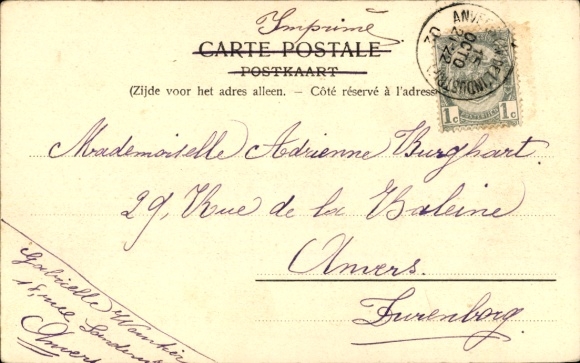 Imprimé
CARTE POSTALE
POSTKAART
(Zijde voor het adres alleen. – Côté réservé à l'adress
1c 1c
Mademoiselle Adrienne Burghart.
29, Rue de la Baleine
Anvers.
Zurenborg.
Gabrielle
18, rue
Anvers